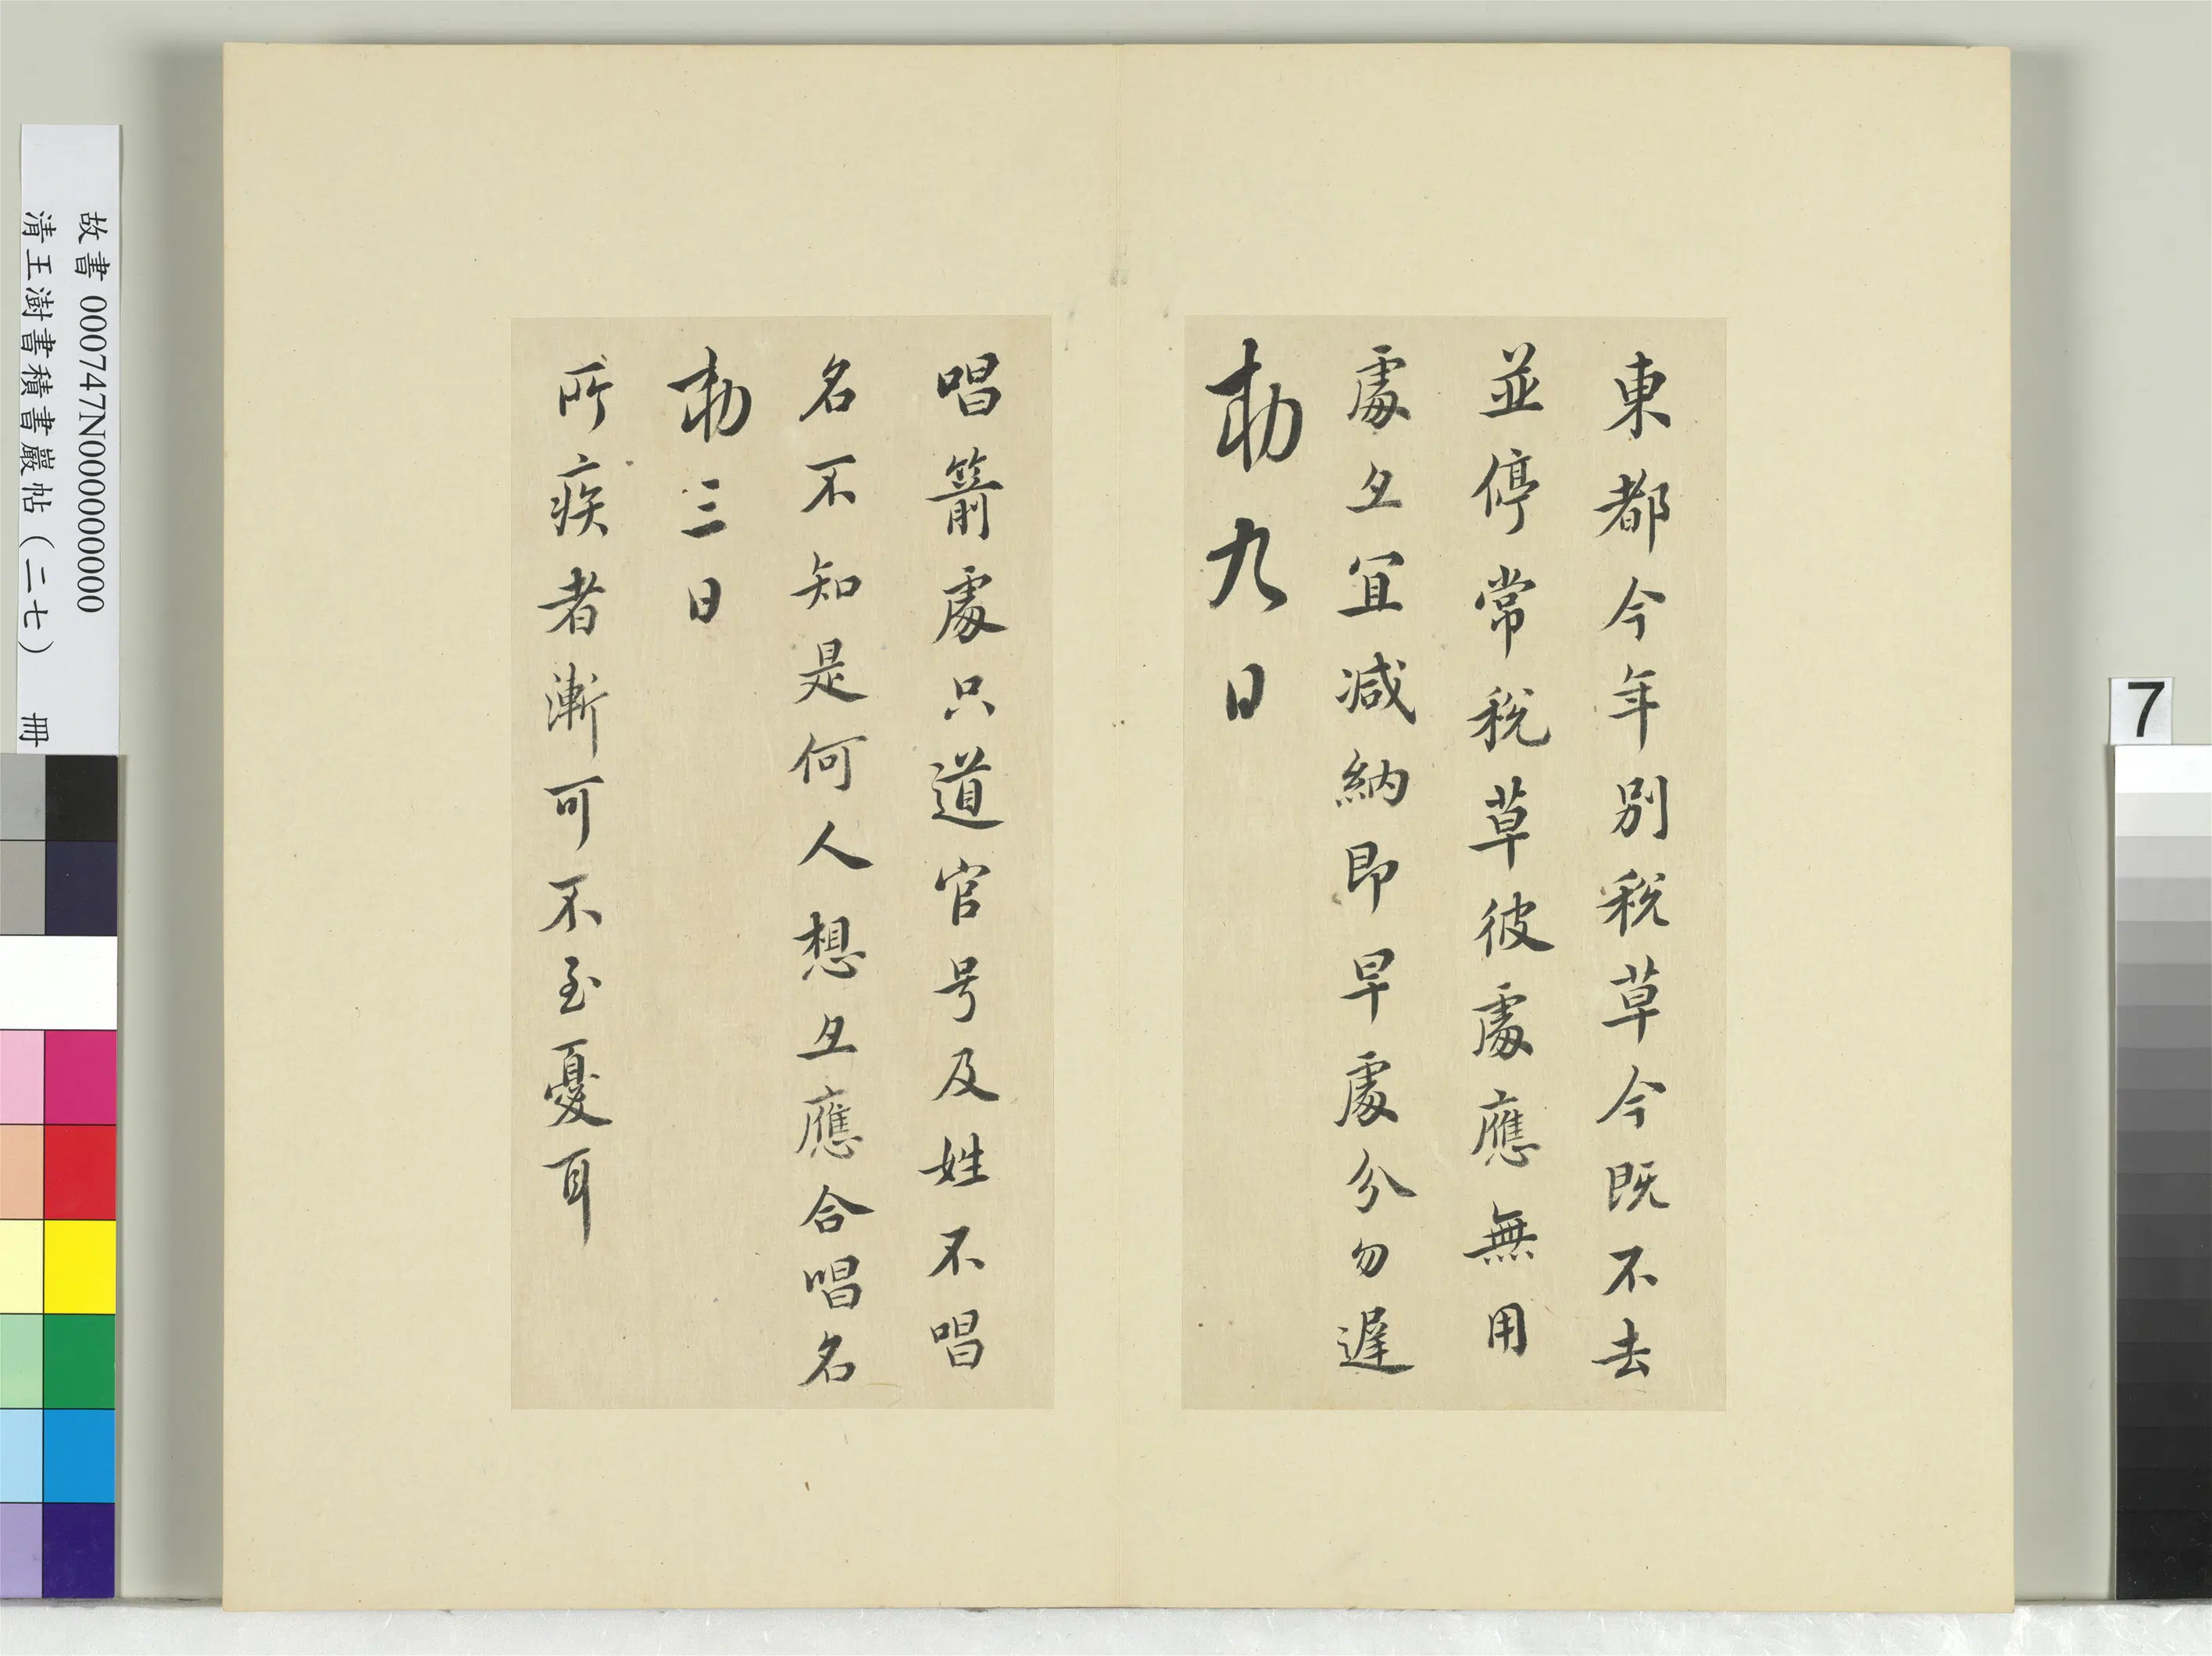 東都今年別稅草今既不去
並停常稅草彼處應無用
處亦宜減納即早處分勿遲
勅九日
唱箭處只道官号及姓不唱
名不知是何人想亦應合唱名
勅三日
所疾者漸可不至憂耳
故書 000747N000000000
清王澍書積書巖帖（二七） 冊
7